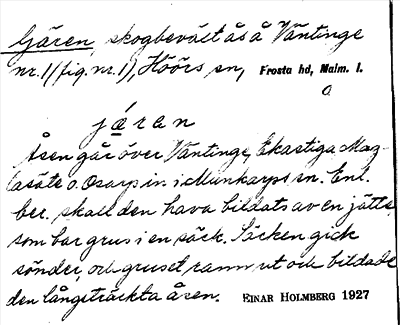 Gåren, skogbevält ås å Väntinge
nr. 1 (fig. nr. 1), Höörs sn, Frosta hd, Malm. l.
a
jǻran
Åsen går över Väntinge, Ekastiga Mag-
lasäte o. Osarp in i Munkarps sn. Enl.
ber. skall den hava bildats av en jätte
som bar grus i en säck. Säcken gick
sönder, och gruset rann ut och bildade
den långsträckta åsen. EINAR HOLMBERG 1927